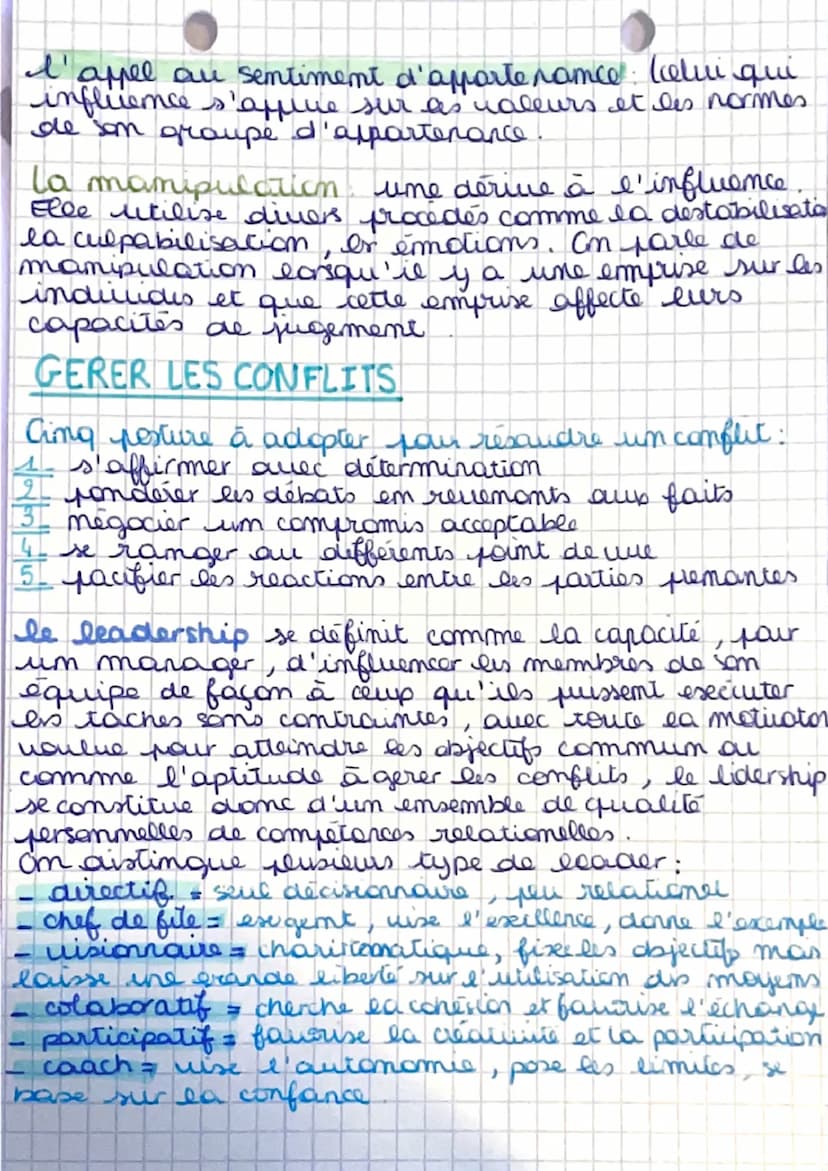 l'appel au sentiment d'appartenance : (celui qui
influence s'appuie sur les valeurs et les normes
de son groupe d'appartenance.
La manipulation : une dérive à l'influence.
Elle utilise divers procédés comme la destabilisatio
la culpabilisation, les émotions. On parle de
manipulation lorsqu'il y a une emprise sur les
individus et que cette emprise affecte leurs
capacités de jugement
GERER LES CONFLITS
Cinq posture à adopter pour résoudre un conflit :
1- s'affirmer avec détermination
2- pondérer les débats en revenants aux faits
3- négocier um compromis acceptable
4- se ranger au différents point de vue
5- pacifier les reactions entre les parties prenantes
le leadership se définit comme la capacité, pour
un manager, d'influencer les membres de son
équipe de façon à ceux qu'ils puissent executer
les taches sans contraintes, avec toute la motivation
voulue pour atteindre les objectifs commun ou
comme l'aptitude à gerer les conflits, le lidership
se constitue donc d'un ensemble de qualité
personnelles de compétences relationelles.
On distingue plusieurs type de leader :
- directif = seul décisionnaire, peu relationel
- chef de file = exigent, vise l'exellence, donne l'exemple
- visionnaire = charismatique, fixe les objectifs mais
laisse une grande liberté sur l'utilisation des moyens
- colaboratif = cherche la cohésion et favorise l'échange
- participatif = favorise la créativité et la participation
- coach = vise l'autonomie, pose les limites, se
base sur la confiance